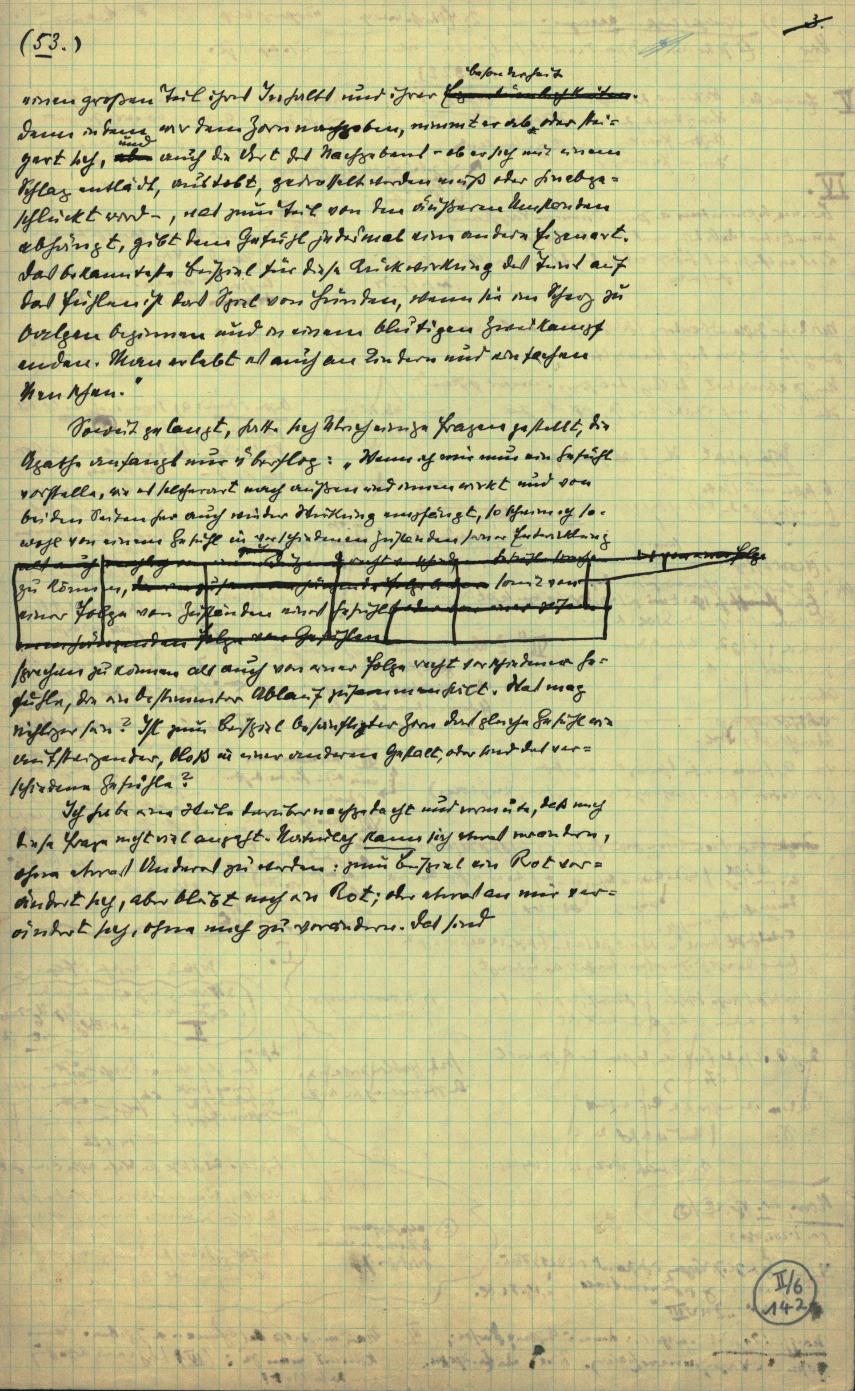 (53.)
3.
Besonderheit
einen großen Teil ihres Inhalts und ihrer Eigentümlichkeiten.
Denn indem wir dem Zorn nachgeben, nimmt er ab oder stei-
und
gert sich, aber auch die Art des Nachgebens – ob er sich mit einem
Schlag entlädt, austobt, gedrosselt werden muß oder hinabge-
schluckt wird –, was zum Teil von den äußeren Umständen
abhängt, gibt dem Gefühl jedesmal eine andere Eigenart.
Das bekannteste Beispiel für diese Rückwirkung des Tuns auf
das Fühlen ist das Spiel von Hunden, wenn sie im Scherz zu
balgen beginnen und in einem blutigen Zweikampf
enden. Man erlebt es auch an Kindern und einfachen
Menschen."
Soweit gelangt, hatte sich Ulrich einige Fragen gestellt, die
Agathe anfangs nur überflog: „Wenn ich mir nun ein Gefühl
vorstelle, wie es solcherart nach außen und innen wirkt und von
beiden Seiten her auch wieder Wirkung empfängt, so schein ich so-
wohl von einem Gefühl in verschiedenen Zuständen seiner Entwicklung
zu können, somit von
einer Folge von Zuständen eines Gefühls
zusammenhängenden Folge von Gefühlen
sprechen zu können als auch von einer Folge recht verschiedener Ge-
fühle, die ein bestimmter Ablauf zusammenhält. Was mag
richtiger sein? Ist zum Beispiel besänftigter Zorn das gleiche Gefühl wie
aufsteigender, bloß in einer anderen Gestalt, oder sind das ver-
schiedene Gefühle?
Ich habe eine Weile darüber nachgedacht und vermute, daß mich
diese Frage nicht viel angeht. Natürlich kann sich etwas verändern,
ohne etwas Anderes zu werden: zum Beispiel ein Rot ver-
ändert sich, aber bleibt noch ein Rot; oder etwas an mir ver-
ändert sich, ohne mich zu verändern. Das sind
II/6
142